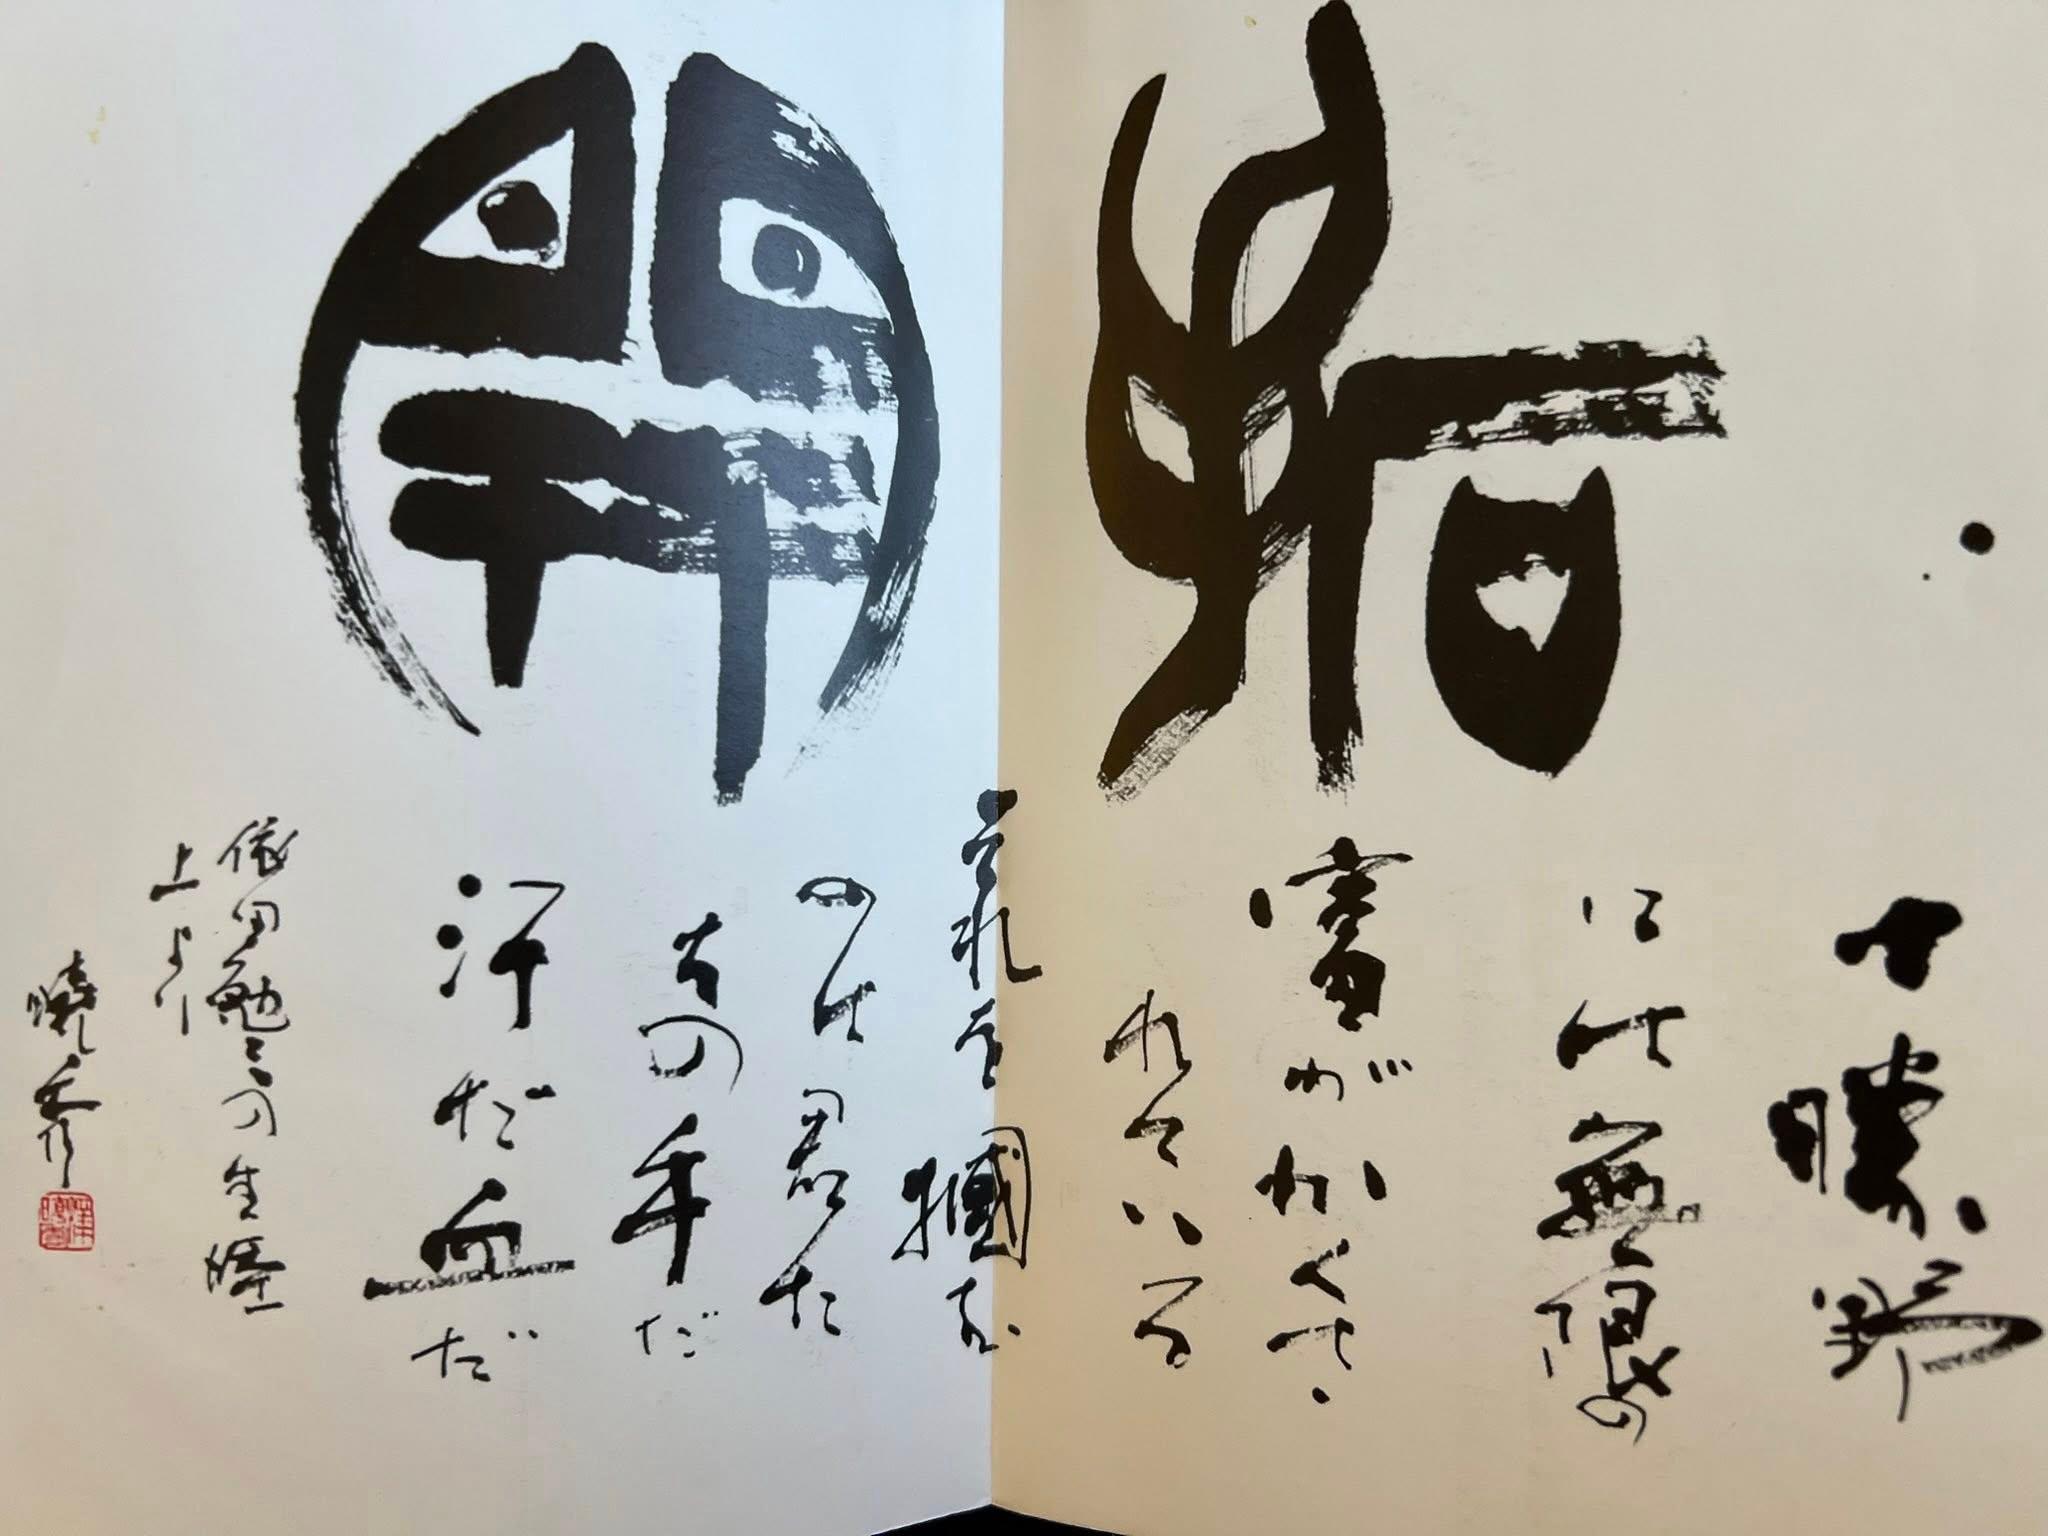 開拓
十勝野
には無限の
富がかくさ
れている
それを摑む
のは君た
ちの手だ
汗だ血だ
依田勉三の生涯
上より